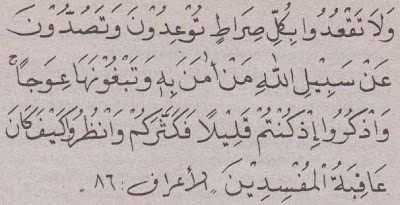 وَلَا تَقْعُدُوا بِكُلِّ صِرَاطٍ تُوْعِدُوْنَ وَتَصُدُّوْنَ
عَنْ سَبِيْلِ اللهِ مَنْ اٰمَنَ بِهٖ وَتَبْغُوْنَهَا عِوَجًا ۚ
وَاذْكُرُوا اِذْ كُنْتُمْ قَلِيْلًا فَكَثَّرَكُمْ وَانْظُرُوا كَيْفَ كَانَ
عَاقِبَةُ الْمُفْسِدِيْنَ " الأعراف : ٨٦ "